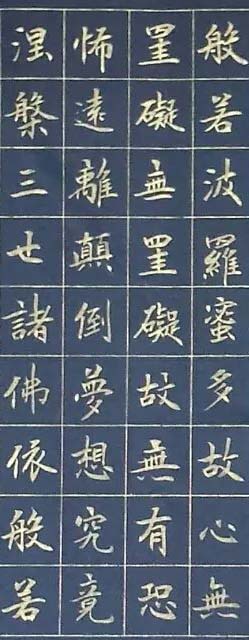 般若波羅蜜多故心無
罣礙無罣礙故無有恐
怖遠離顛倒夢想究竟
涅槃三世諸佛依般若